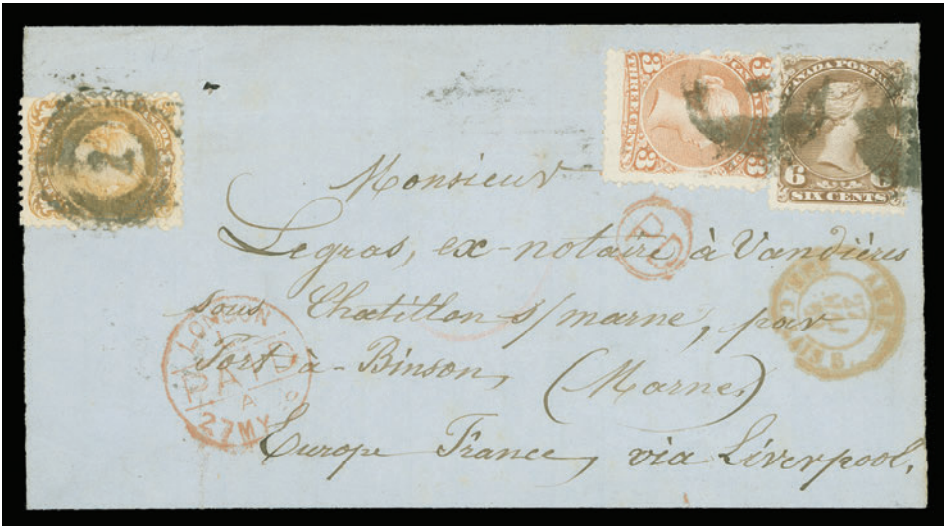 CANADA POSTAGE
3 3
THREE CENTS
6 6
SIX CENTS
Monsieur
Legras, ex-notaire à Vandières
sous Chatillon s/marne, par
Port-à-Binson, (Marne)
Europe France, via Liverpool.
PD
LONDON
A
27 MY